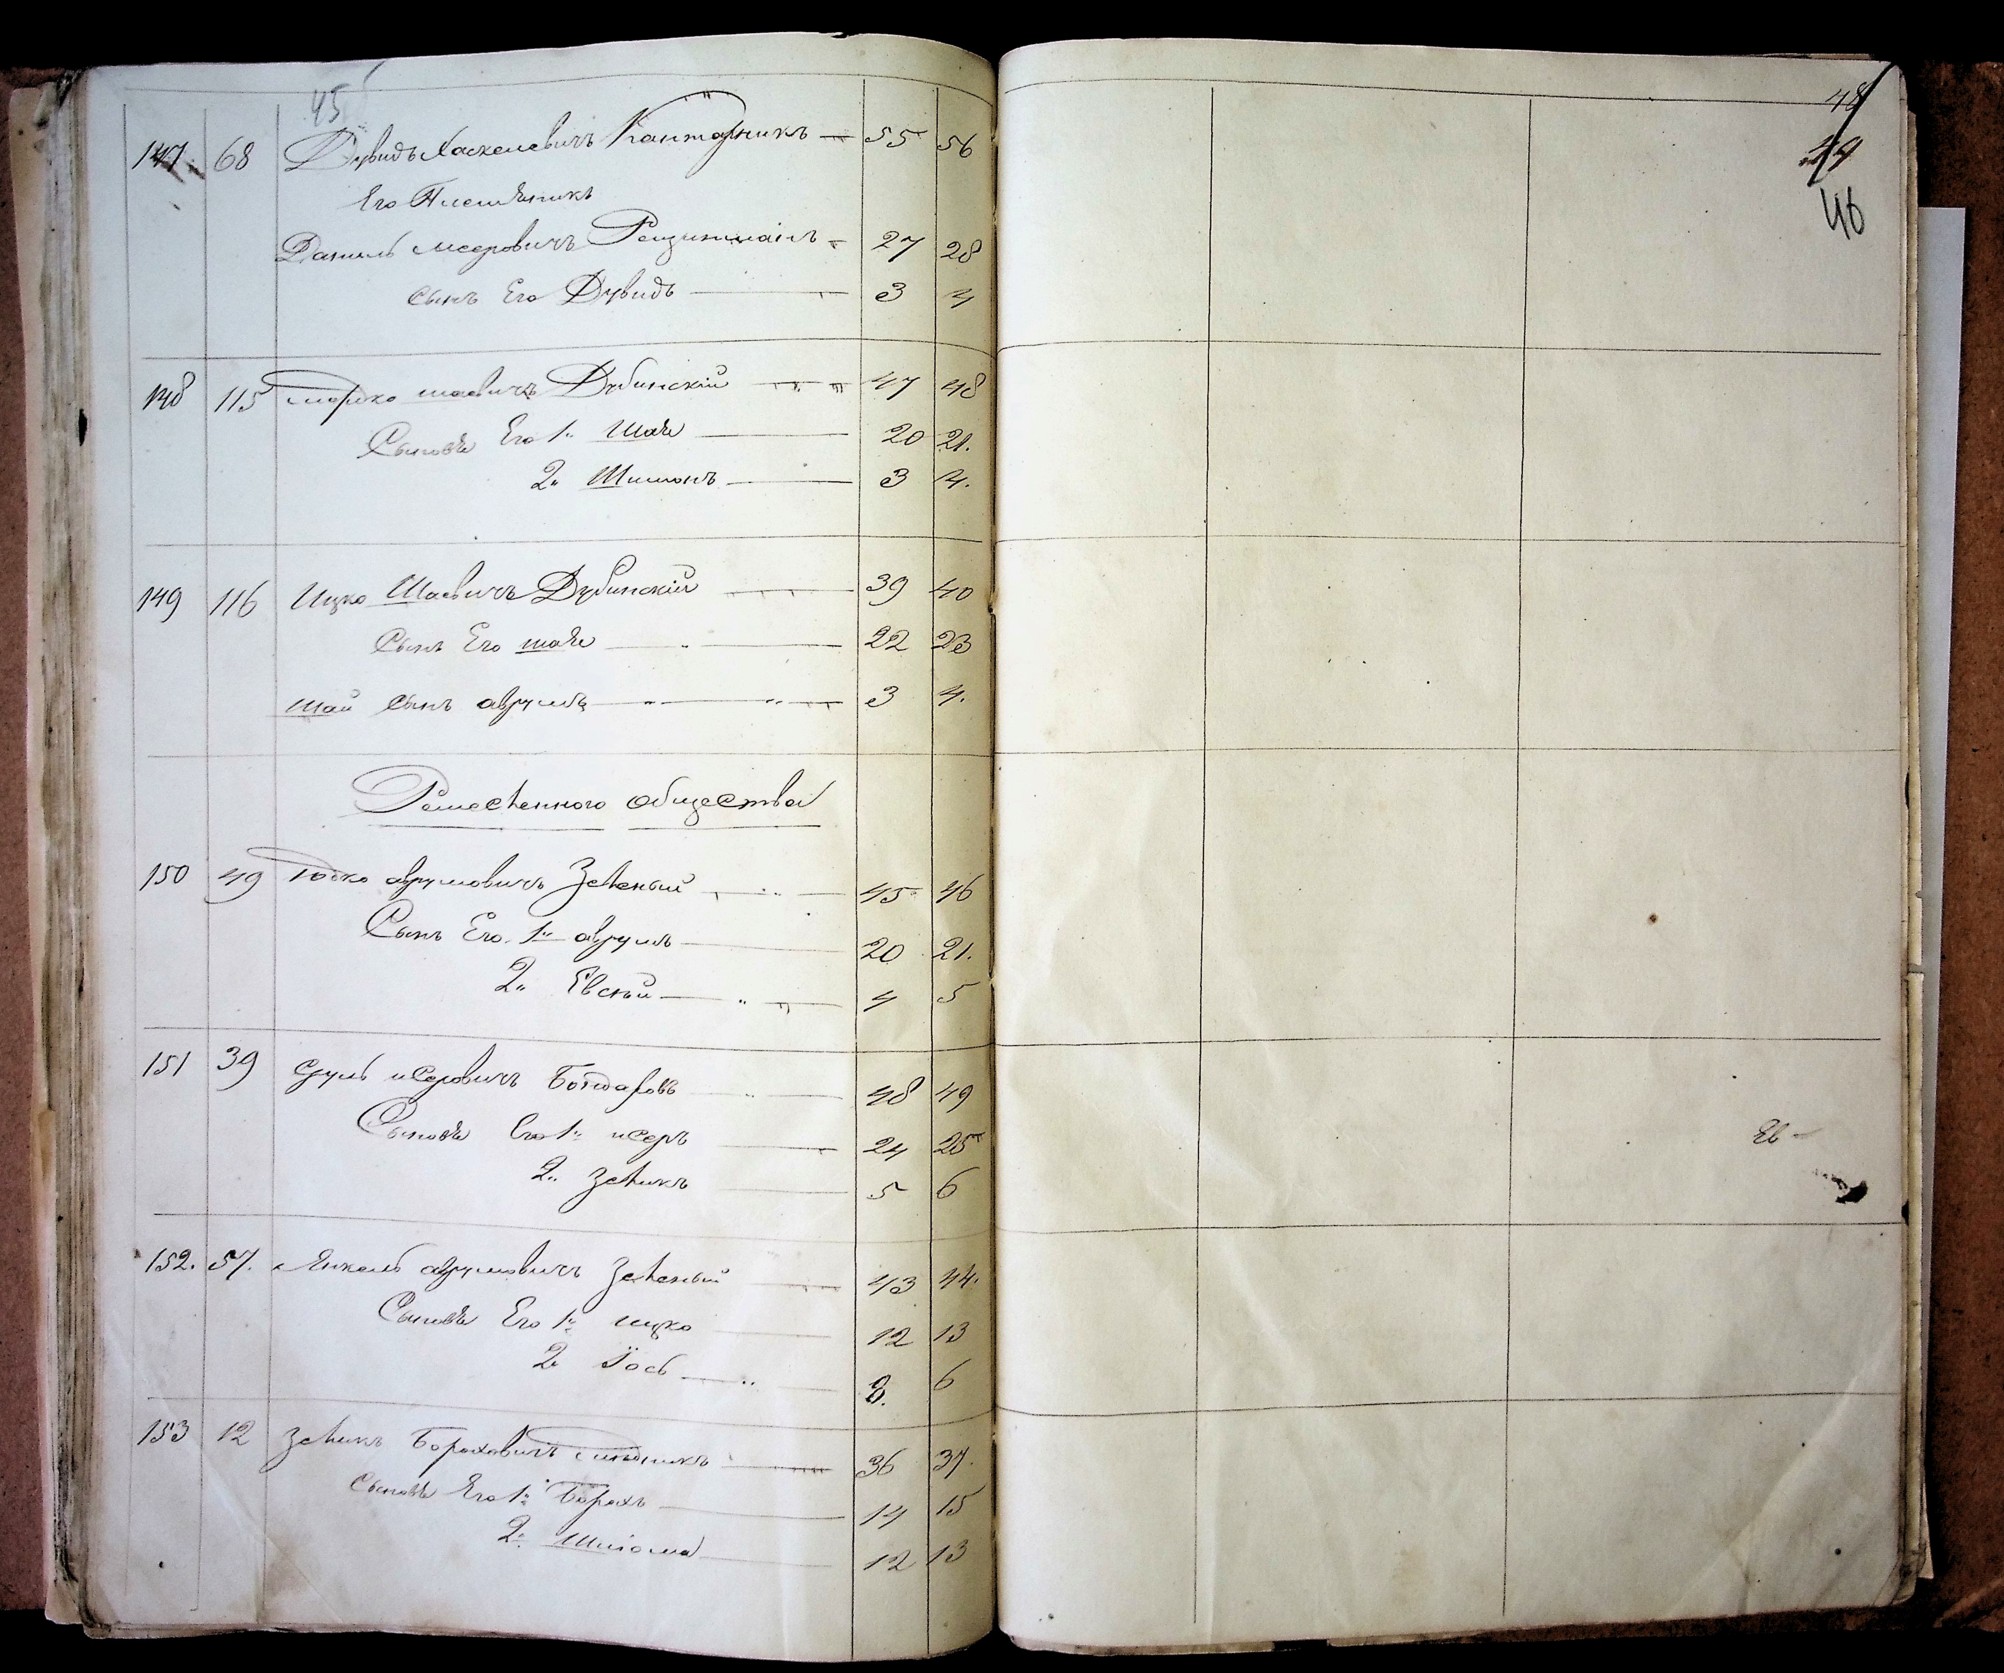 45
147. 68 Дувидъ Хаскелевичъ Кантарникъ — 55 56
Его Племѣникъ
Даниль Меерович 27 28
сынъ Его Дувидъ — 3 4
148 115 Мортко Шаевичъ Дубинскій — 47 48
Сыновѣ Его 1. Шаѣ — 20 21.
2. Шимонъ — 3 4.
149 116 Ицко Шаевичъ Дубинскій — 39 40
Сынъ Его Шаѣ — 22 23
Шаи сынъ Аврумъ — 3 4.
Ремесленного общества
150 49 Юдко Аврумовичъ Зеленый — 45 46
Сынъ Его. 1. Аврумъ — 20 21.
2. Евсѣй — 4 5
151 39 Сруль Исеровичъ Бондаровъ — 48 49
Сыновѣ Его 1. Исеръ — 24 25
2. Зеликъ — 5 6
152. 57. Янкель Аврумовичъ Зеленый — 43 44.
Сыновѣ Его 1. Ицко — 12 13
2 Іось — 8. 6
153 12 Зеликъ Бороховичъ — 36 37.
Сыновѣ Его 1. Борохъ — 14 15
2. Шліома — 12 13
48
49
46